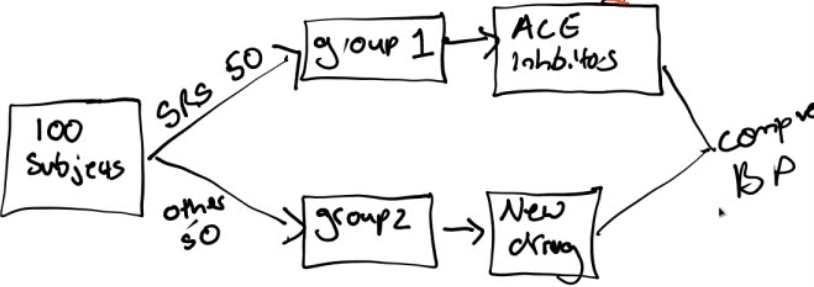 100
Subjects
SRS 50
group 1
ACE
Inhibitors
other
50
group 2
New
drug
BP